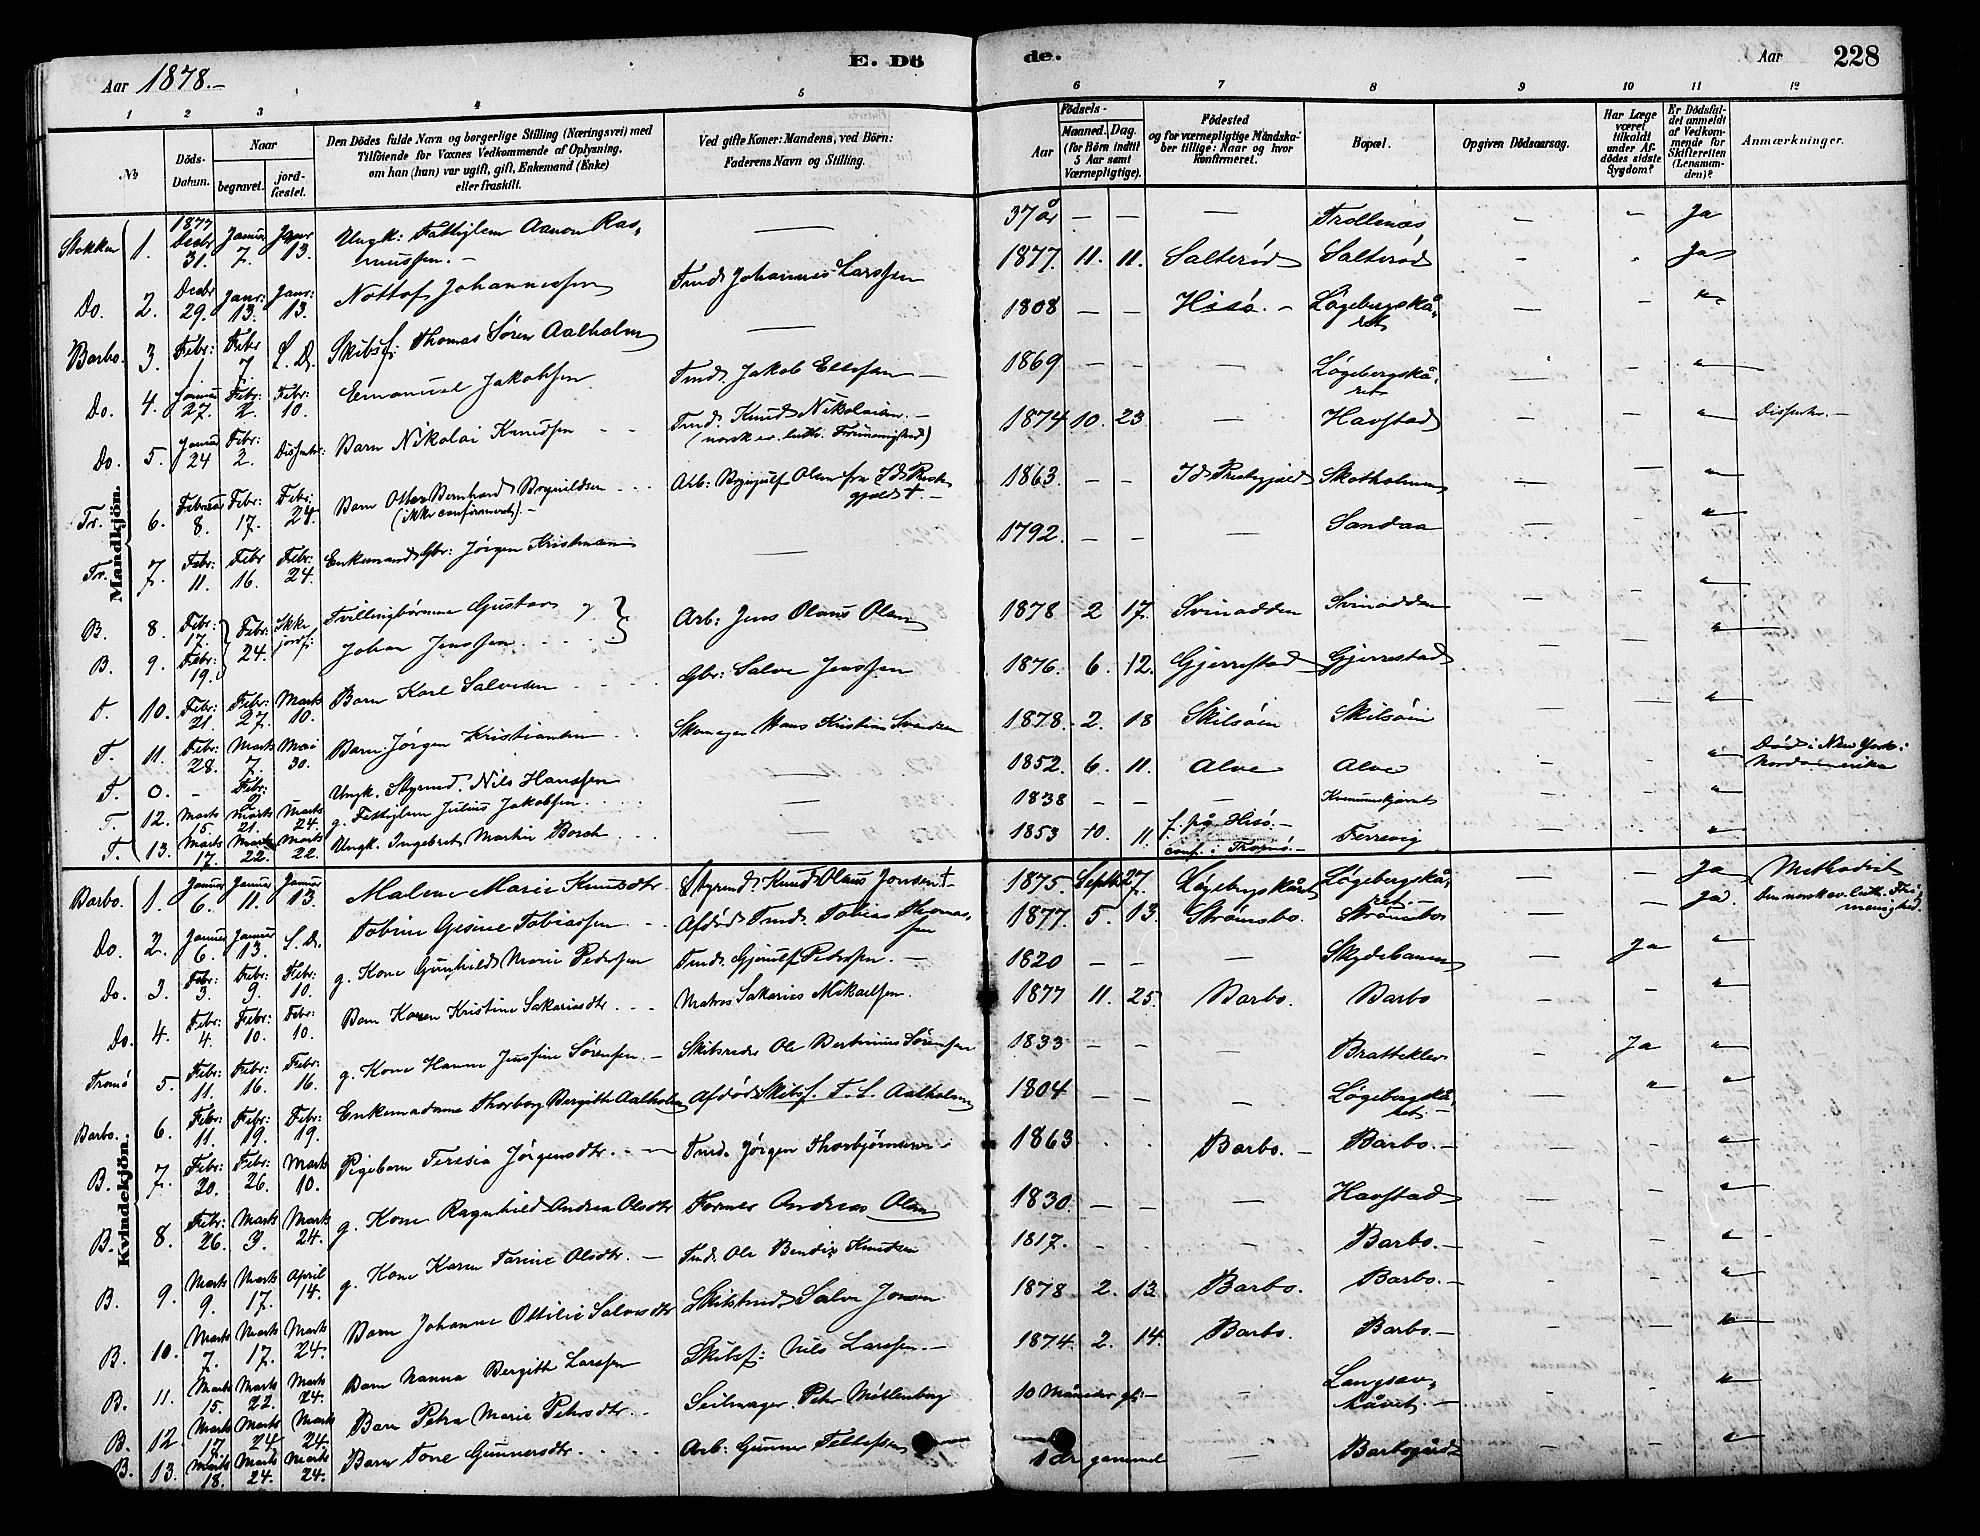 Aar 1878.-
E. Dö
de.
Aar
228
1 2 3 4 5 6 7 8 9 10 11 12
No
Döds-Datum.
Naar
begravet.
jord-fæstet.
Den Dödes fulde Navn og borgerlige Stilling (Næringsvei) med
Tilföiende for Voxnes Vedkommende af Oplysning,
om han (hun) var ugift, gift, Enkemand (Enke)
eller fraskilt.
Ved gifte Koner: Mandens, ved Börn:
Faderens Navn og Stilling.
Födsels-
Aar
Maaned. Dag.
(for Börn indtil
5 Aar samt
Værnepligtige).
Födested
og for værnepligtige Mandska-
ber tillige: Naar og hvor
konfirmeret.
Bopæl.
Opgiven Dödsaarsag.
Har Læge
været
tilkaldt
under Af-
dödes sidste
Sygdom?
Er Dödsfal-
det anmeldt
af Vedkom-
mende for
Skifteretten
(Lensman-
den)?
Anmærkninger.
Mandkjön.
Stokken 1. 1877 Decbr 31. Januar 7. Janr 13. Ungk: Fattiglem Aanon Ras-
mussen.- — 37 år — — — Trollenæs - - Ja
Do. 2. Decbr 29. Janr: 13. Janr: 13. Nottof Johannessen Tmd. Johannes Larssen 1877. 11. 11. Salterød Salterød - - Ja
Barbo. 3. Febr: 1 Febr 7. S. D. Skibsf: Thomas Sören Aalholm — 1808 — — Hisö.- Løgebergskå-
ret — - "
Do. 4. Januar 27. Febr: 2. Febr: 10. Emanuel Jakobsen Tmd. Jakob Ellefsen — 1869 — — — Løgebergskå-
ret — - "
Do. 5. Januar 24 Febr: 2. Dissenter: Barn Nikolai Knudsen Tmd. Knud Nikolaisen.-
(norsk ev. luth. Frimenighed) 1874 10. 23 — Havstad — - " Dissenter.-
Tr. 6. Februar 8. Febr: 17. Febr: 24. Barn Otter Bernhard Bryniildsen
(ikke confirmeret).- Arb: Brynjulf Olsen fra Id. Prest-
gjæld † - 1863 - - Id. Prestegjæld Skotholmen — — "
Tr. 7. Febr: 11. Febr 16. Febr: 24. Enkemand Gbr: Jörgen Kristensen — 1792. - - — Sandaa — - "
B. 8. Febr: 17. Febr: 24. Ikke jordf: Tvillingbörnene Gustav og Arb: Jens Olaus Olsen 1878 2 17. Svinodden Svinodden - - "
B. 9. Febr: 19. Johan Jenssen "
T. 10. Febr: 21 Febr: 27. Marts 10. Barn Karl Salvesen Gbr: Salve Jenssen 1876. 6. 12. Gjerrestad Gjerrestad - - "
T. 11. Febr: 28. Marts 7. Mai 30. Barn. Jörgen Kristiansen Skomager Hans Kristian 1878 - 2. 18 Skilsöen Skilsöen - - "
T. 0. - Febr: 2. Ungk. Styrmd. Nils Hanssen — 1852. 6. 11. Alve Alve - - " Död i New York i
Nordamerika
T. 12. Marts 15. Marts 21. Marts 24. g. Fattiglem Julius Jakobsen — 1838 - - - - - "
T. 13. Marts 17. Marts 22. Marts 22. Ungk. Ingebret Martin Bosch — 1853 10. 11. f. på Hisö.-
conf. i Tromö.- Færevig - - "
Kvindekjön.
Barbo. 1. Januar 6. Januar 11. Januar 13. Malene Marie Knudsdtr. Styrmd. Knud Olaus Jonsen † 1875. Septb. 27. Løgebergskåret Løgebergskå-
ret.- — — Ja Methodist
Do. 2. Januar 6. Januar 13. S. D. Tobine Gesine Tobiassen Afdöd Tmd. Tobias Thomas-
sen 1877. 5. 13. Strömsbo. Strömsbo — — Ja. Den norsk ev. luth. Fri-
menighed.
Do. 3. Febr: 3. Febr: 9. Febr: 10. g. Kone Gunhild Marie Pedersen Tmd. Gjerulf Pedersen.- 1820 — — — Skydebanen — Ja "
Do. 4. Febr: 4. Febr: 10. Febr: 10. Barn Karen Kristine Sakariasdtr. Matros Sakarias Mikaelsen. 1877 11. 25. Barbo. Barbo — - "
Tromö 5. Febr: 11. Febr: 16. Febr: 16. g. Kone Hanne Jensine Sörensen.- Skibsreder Ole Sörensen 1833 - - - Bratteklev - Ja "
Barbo. 6. Febr: 11. Febr: 19. Febr: 19. Enkemadame Thorborg Bergitte Aalholm Afdöd Skibsf. T. S. Aalholm 1804 - - - Løgebergskå-
ret.- - " "
B. 7. Febr: 20. Febr: 26. Marts 10. Pigebarn Teresia Jörgensdtr. Tmd. Jörgen Thorbjörnsen 1863 . . Barbo.- Barbo.- - - "
B. 8. Febr: 26. Marts 3. Marts 24. g. Kone Ragnhild Andrea Olsdtr Former Andreas Olsen 1830. - - - Havstad - - "
B. 9. Marts 9. Marts 17. April 14. g. Kone Karen Tarine Olsdtr.- Tmd. Ole Bendix Knudsen 1817. - - - Barbo.- - - "
B. 10. Marts 7. Marts 17. Marts 24. Barn Johanne Ottilie Salvesdtr Skibstmd. Salve Jonsen 1878 2. 13. Barbo. Barbo.- - - "
B. 11. Marts 15. Marts 22. Marts 24. Barn Nanna Bergitte Larssen Skibsf: Nils Larssen.- 1874. 2. 14. Barbo. Barbo.- - - "
B. 12. Marts 17. Marts 24 Marts 24. Barn Petra Marie Petersdtr.- Seilmager. Peter Möllenborg 10 Måneder gl.- - Langsæv-
kåret.- - - "
B. 13. Marts 18. Marts 24. Marts 24. Barn Tone Gunnersdtr. Arb: Gunner Tellefsen 1 år gammel Barbogård - - "